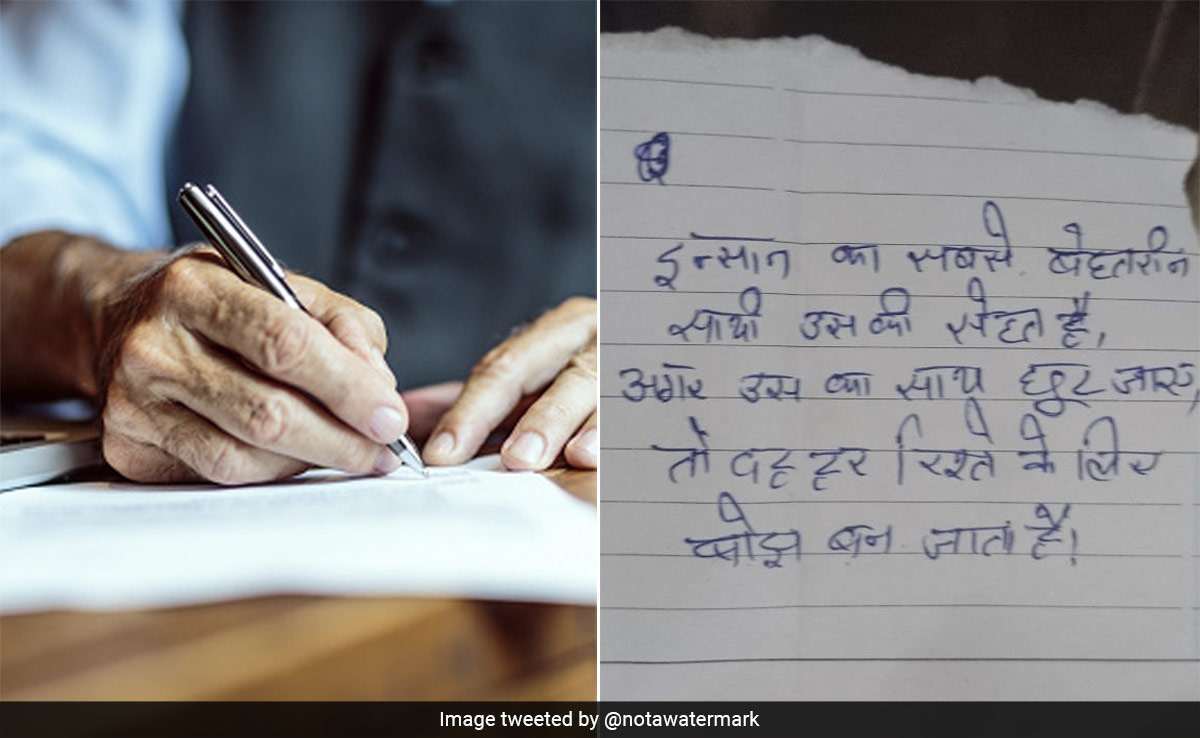 इन्सान का सबसे बेहतरीन
साथी उस की सेहत है,
अगर उस का साथ छूट जाए,
तो वह हर रिश्ते के लिए
बोझ बन जाता है।
Image tweeted by @notawatermark